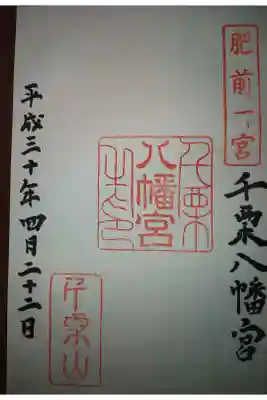 肥前一宮
千栗八幡宮
千栗
八幡宮
之印
千栗山
平成三十年四月二十二日